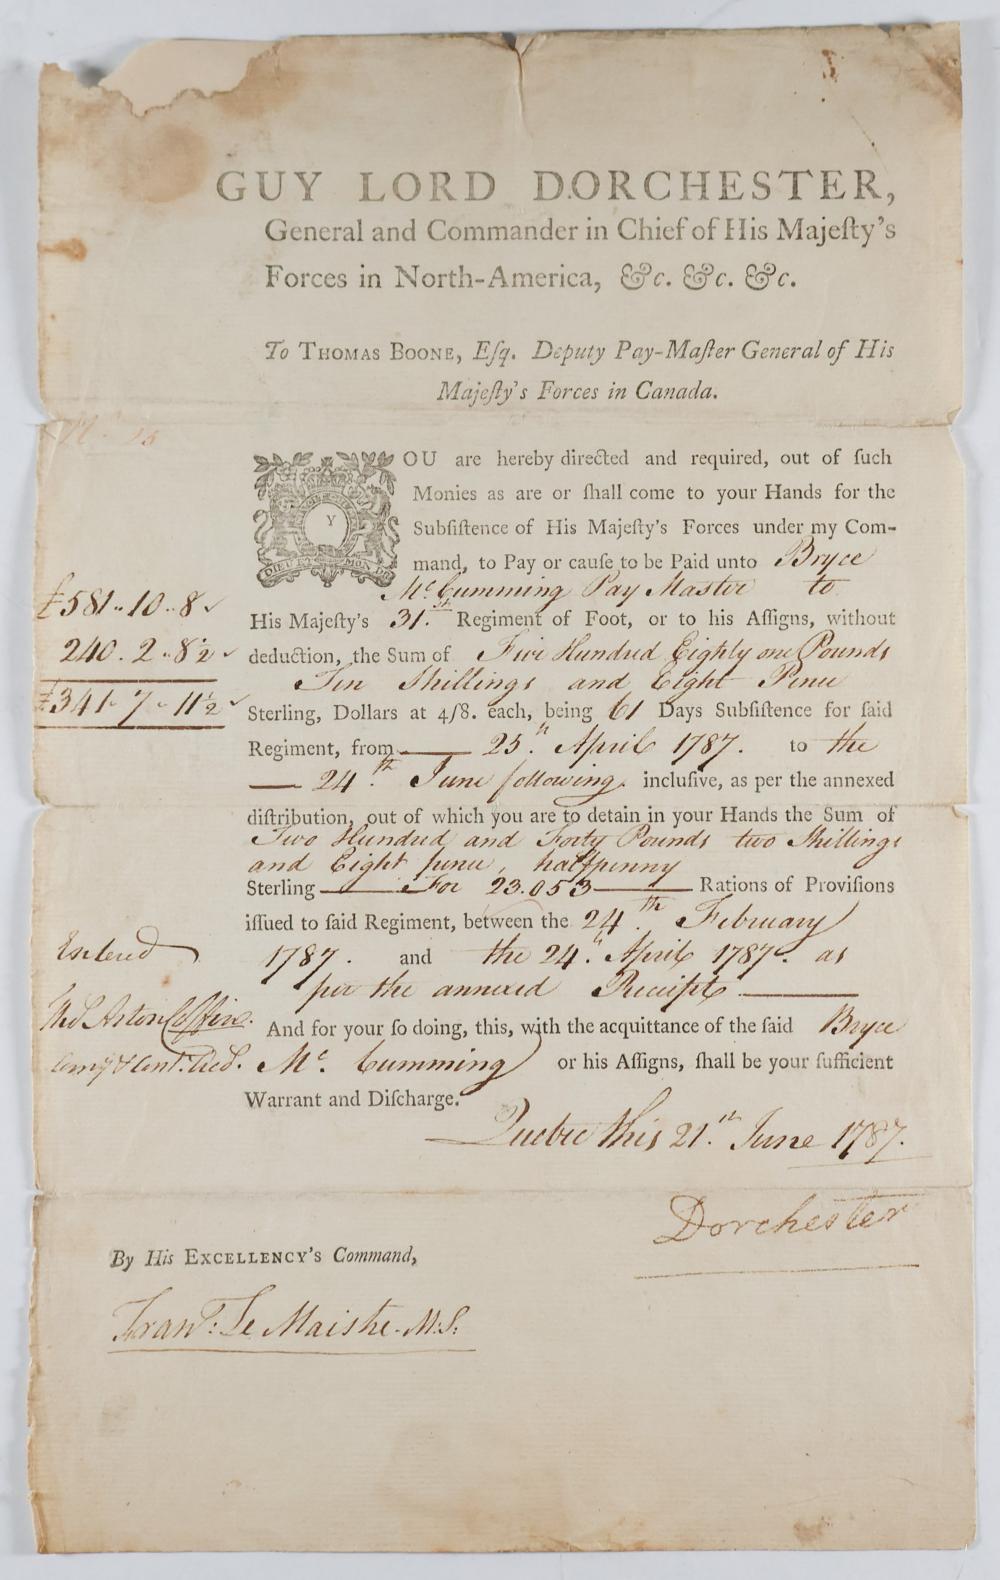 GUY LORD DORCHESTER,
General and Commander in Chief of His Majeſty's
Forces in North-America, &c. &c. &c.
To THOMAS BOONE, Eſq. Deputy Pay-Maſter General of His
Majeſty's Forces in Canada.
YOU are hereby directed and required, out of ſuch
Monies as are or ſhall come to your Hands for the
Subſiſtence of His Majeſty's Forces under my Com-
mand, to Pay or cauſe to be Paid unto Bryce
Mc. Cumming Pay Master to
His Majeſty's 31.st Regiment of Foot, or to his Aſſigns, without
deduction, the Sum of Five Hundred Eighty one Pounds
Ten Shillings and Eight Pence
Sterling, Dollars at 4/8. each, being 61 Days Subſiſtence for ſaid
Regiment, from 25.th April 1787. to the
24.th June following. incluſive, as per the annexed
diſtribution, out of which you are to detain in your Hands the Sum of
Two Hundred and Forty Pounds two Shillings
and Eight pence, halfpenny
Sterling For 23.053 Rations of Proviſions
iſſued to ſaid Regiment, between the 24.th February
1787. and the 24.th April 1787. as
per the annexed Receipts
And for your ſo doing, this, with the acquittance of the ſaid Bryce
Mc. Cumming or his Aſſigns, ſhall be your ſufficient
Warrant and Diſcharge.
Quebec this 21.st June 1787.
Dorchester
By His EXCELLENCY'S Command,
Fran.s Le Maistre. M.S.
£581..10..8
240.2..8½
£341..7..11½
Entered
Tho.s Aston Coffin.
DIEU ET MON DROIT